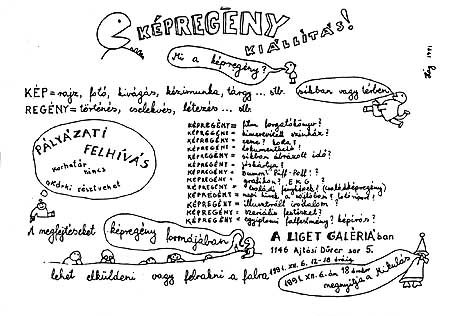 KÉPREGÉNY
KIÁLLÍTÁS!
Mi a képregény?
KÉP = rajz, fotó, kivágás, kézimunka, tárgy ... stb. síkban vagy térben
REGÉNY = történés, cselekvés, létezés ... stb.
PÁLYÁZATI
FELHÍVÁS
korhatár
nincs
akárki részt vehet
KÉPREGÉNY = film forgatókönyve?
KÉPREGÉNY = kimerevített színház?
KÉPREGÉNY = zene? kotta?
KÉPREGÉNY = dokumentáció?
KÉPREGÉNY = síkban ábrázolt idő?
KÉPREGÉNY = jóskártya?
KÉPREGÉNY = Bumm! Piff-Puff!?
KÉPREGÉNY = grafikon?
KÉPREGÉNY = családi fényképek? (családképregény)
KÉPREGÉNY = napi hírek a
KÉPREGÉNY = illusztrált irodalom?
KÉPREGÉNY = szeriális festészet?
KÉPREGÉNY = egyiptomi falfestmény? képírás?
A megfejtéseket képregény formájában
lehet elküldeni vagy felrakni a falra
A LIGET GALÉRIÁban
1146 Ajtósi Dürer sor 5.
1991. XII. 6. 12-18 óráig
1991. XII. 6.án 18 órakor
megnyitja a Mikulás